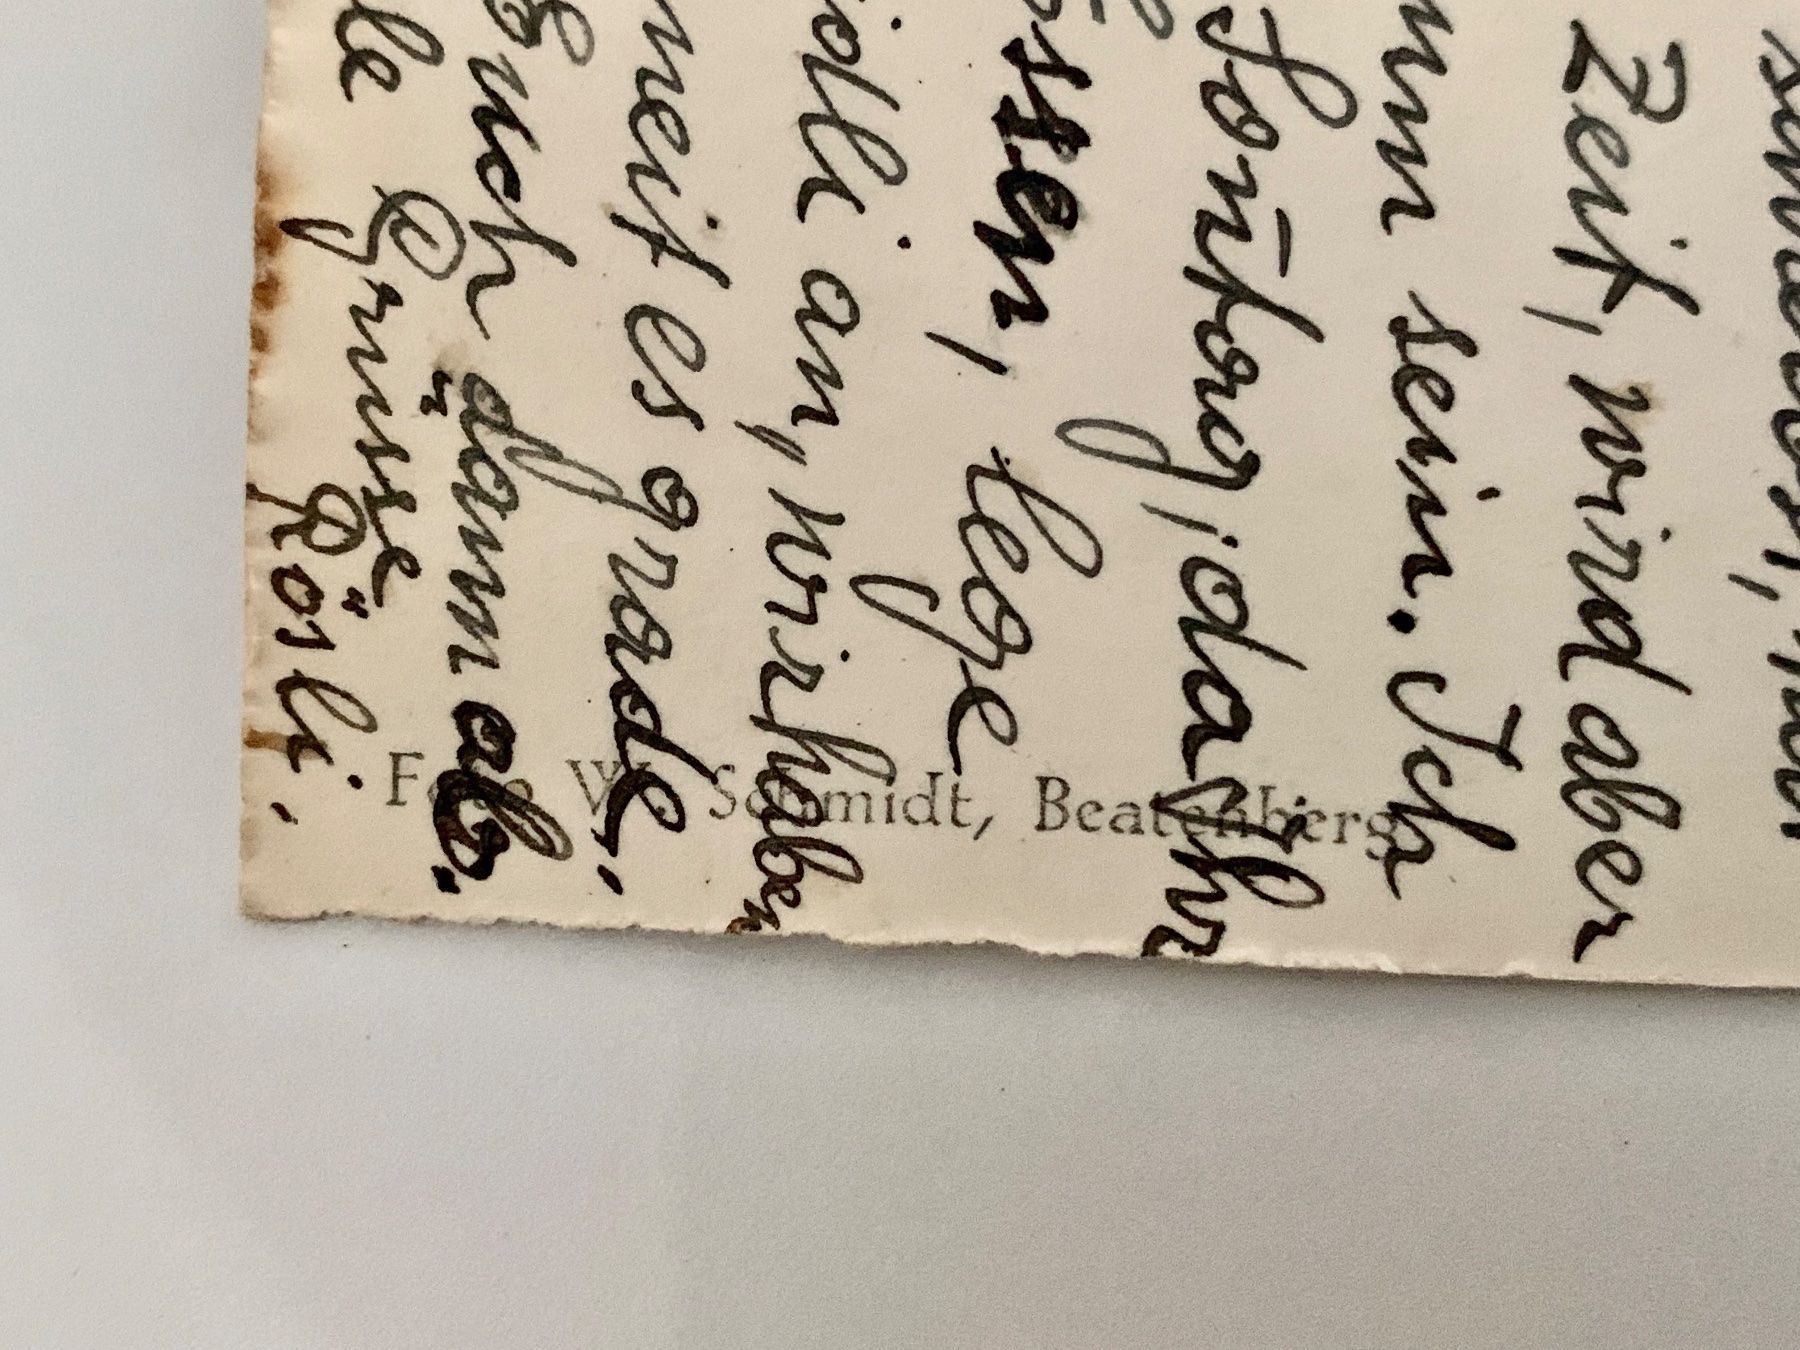 Zeit, wird aber
sein. Ich
Son̄tag, da Ihr
ssen, lege
idli an, wir haben
neit es grade,
Euch dann ab.
le Grüsse
Rösli.
Foto W. Schmidt, Beatenberg